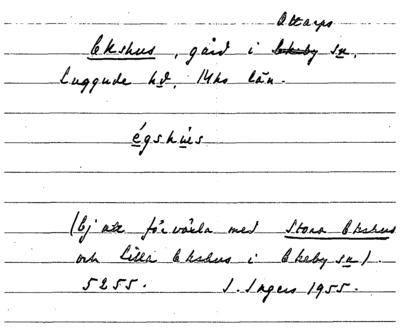 Ottarps
Ekshus, gård i Ekeby sn,
Luggude hd, Mhs län.
égshús
(Ej att förväxla med Stora Ekshus
och Lilla Ekshus i Ekeby sn).
5255. I. Ingers 1955.